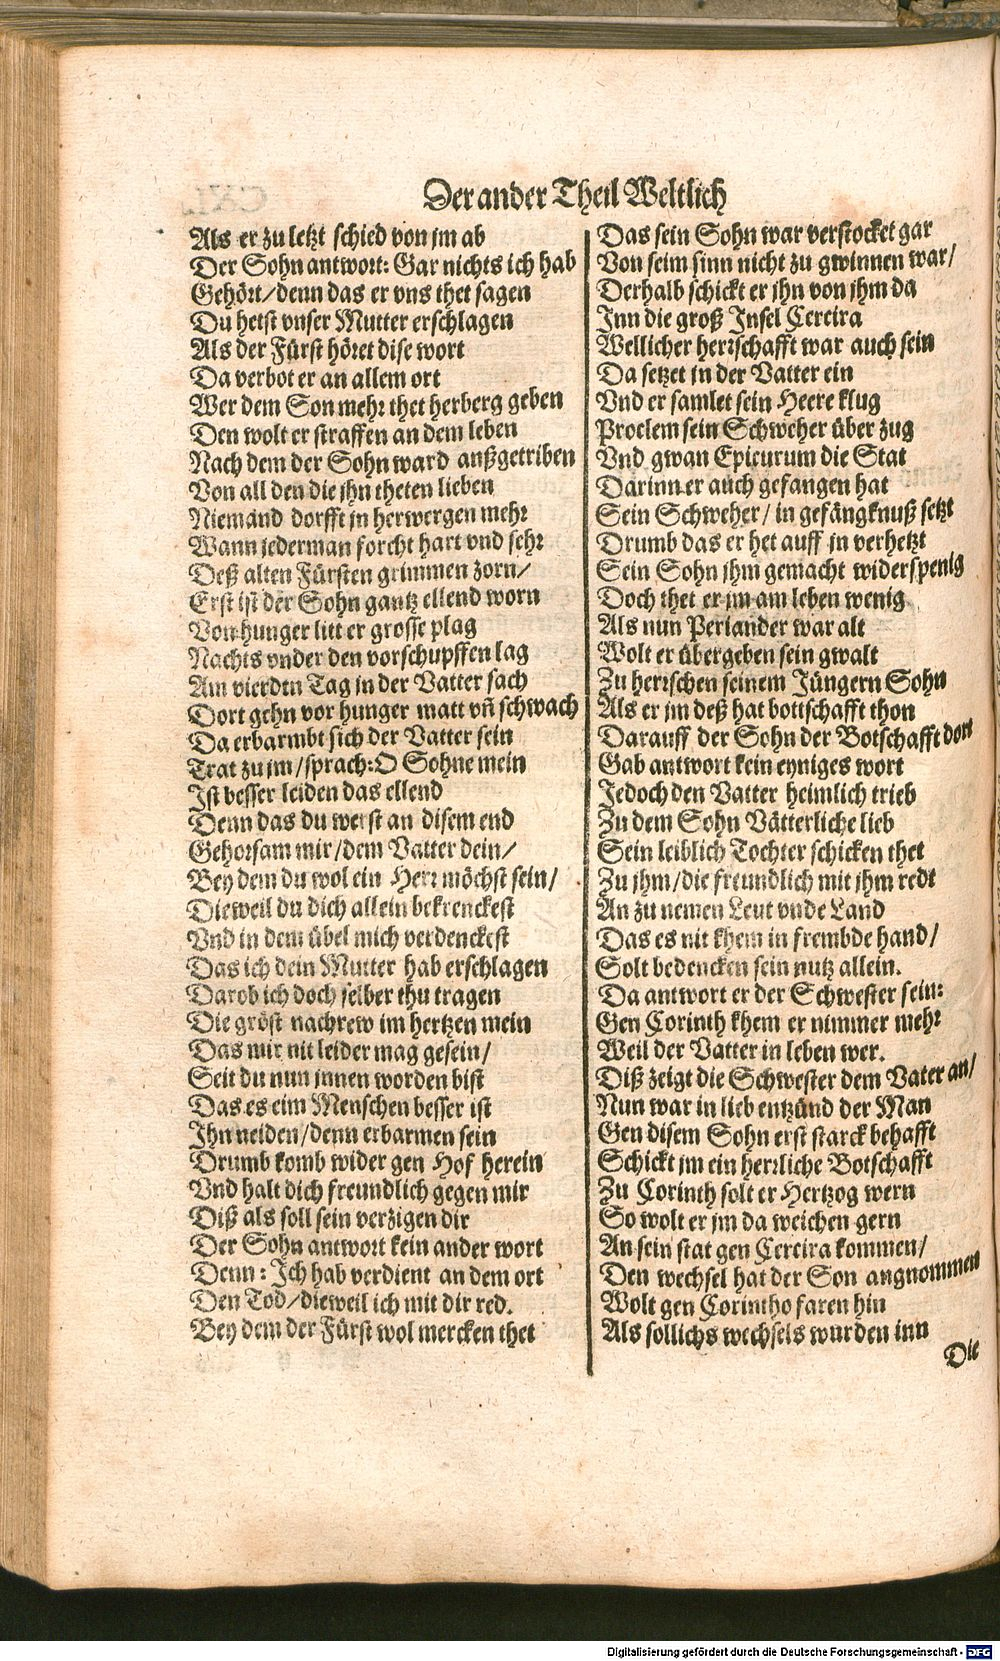 Der ander Theil Weltlich
Als er zu letzt schied von jm ab
Der Sohn antwort: Gar nichts ich hab
Gehört/denn das er vns thet sagen
Du hetst vnser Mutter erschlagen
Als der Fürst höret dise wort
Da verbot er an allem ort
Wer dem Son mehr thet herberg geben
Den wolt er straffen an dem leben
Nach dem der Sohn ward außgetriben
Von all den die jhn theten lieben
Niemand dorfft jn herwergen mehr
Wann jederman forcht hart vnd sehr
Deß alten Fürsten grimmen zorn/
Erst ist der Sohn gantz ellend worn
Von hunger litt er grosse plag
Nachts vnder den vorschupffen lag
Am vierdtn Tag jn der Vatter sach
Dort gehn vor hunger matt vñ schwach
Da erbarmbt sich der Vatter sein
Trat zu jm/sprach: O Sohne mein
Ist besser leiden das ellend
Denn das du werst an disem end
Gehorsam mir/dem Vatter dein/
Bey dem du wol ein Herr möchst sein/
Dieweil du dich allein bekrenckest
Vnd in dem übel mich verdenckest
Das ich dein Mutter hab erschlagen
Darob ich doch selber thu tragen
Die gröst nachrew im hertzen mein
Das mir nit leider mag gesein/
Seit du nun jnnen worden bist
Das es eim Menschen besser ist
Ihn neiden/denn erbarmen sein
Drumb komb wider gen Hof herein
Vnd halt dich freundlich gegen mir
Diß als soll sein verzigen dir
Der Sohn antwort kein ander wort
Denn: Ich hab verdient an dem ort
Den Tod/dieweil ich mit dir red.
Bey dem der Fürst wol mercken thet
Das sein Sohn war verstocket gar
Von seim sinn nicht zu gwinnen war/
Derhalb schickt er jhn von jhm da
Inn die groß Insel Cercira
Wellicher herrschafft war auch sein
Da setzet jn der Vatter ein
Vnd er samlet sein Heere klug
Proclem sein Schweher über zug
Vnd gwan Epicurum die Stat
Darinn er auch gefangen hat
Sein Schweher/in gefängknuß setzt
Drumb das er het auff jn verhetzt
Sein Sohn jhm gemacht widerspenig
Doch thet er jm am leben wenig
Als nun Periander war alt
Wolt er übergeben sein gwalt
Zu herrschen seinem Jüngern Sohn
Als er jm deß hat bottschafft thon
Darauff der Sohn der Botschafft dort
Gab antwort kein eyniges wort
Jedoch den Vatter heimlich trieb
Zu dem Sohn Vätterliche lieb
Sein leiblich Tochter schicken thet
Zu jhm/die freundlich mit jhm redt
An zu nemen Leut vnde Land
Das es nit khem in frembde hand/
Solt bedencken sein nutz allein.
Da antwort er der Schwester sein:
Gen Corinth khem er nimmer mehr
Weil der Vatter in leben wer.
Diß zeigt die Schwester dem Vater an/
Nun war in lieb entzünd der Man
Gen disem Sohn erst starck behafft
Schickt jm ein herrliche Botschafft
Zu Corinth solt er Hertzog wern
So wolt er jm da weichen gern
An sein stat gen Cercira kommen/
Den wechsel hat der Son angnommen
Wolt gen Corintho faren hin
Als sollichs wechsels wurden inn
Die
Digitalisierung gefördert durch die Deutsche Forschungsgemeinschaft - DFG